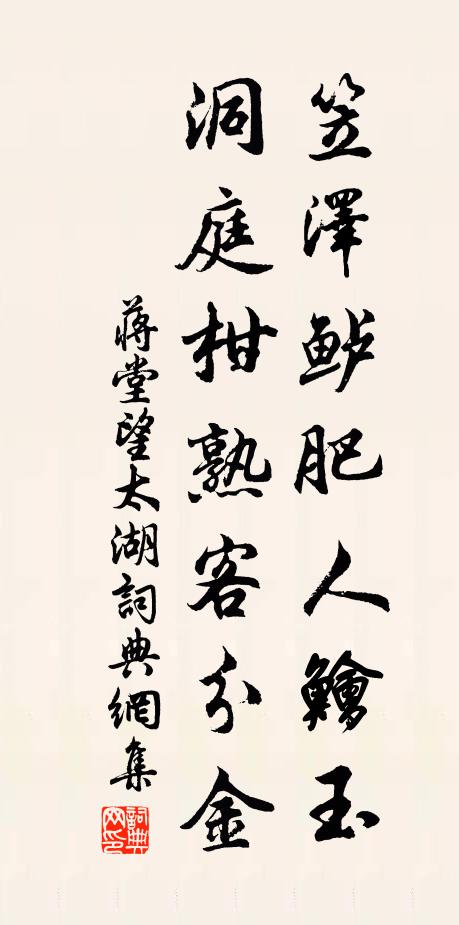 笠澤鲈肥人鱠玉
洞庭柑熟客分金
蔣堂望太湖詞典網集
詞典网印